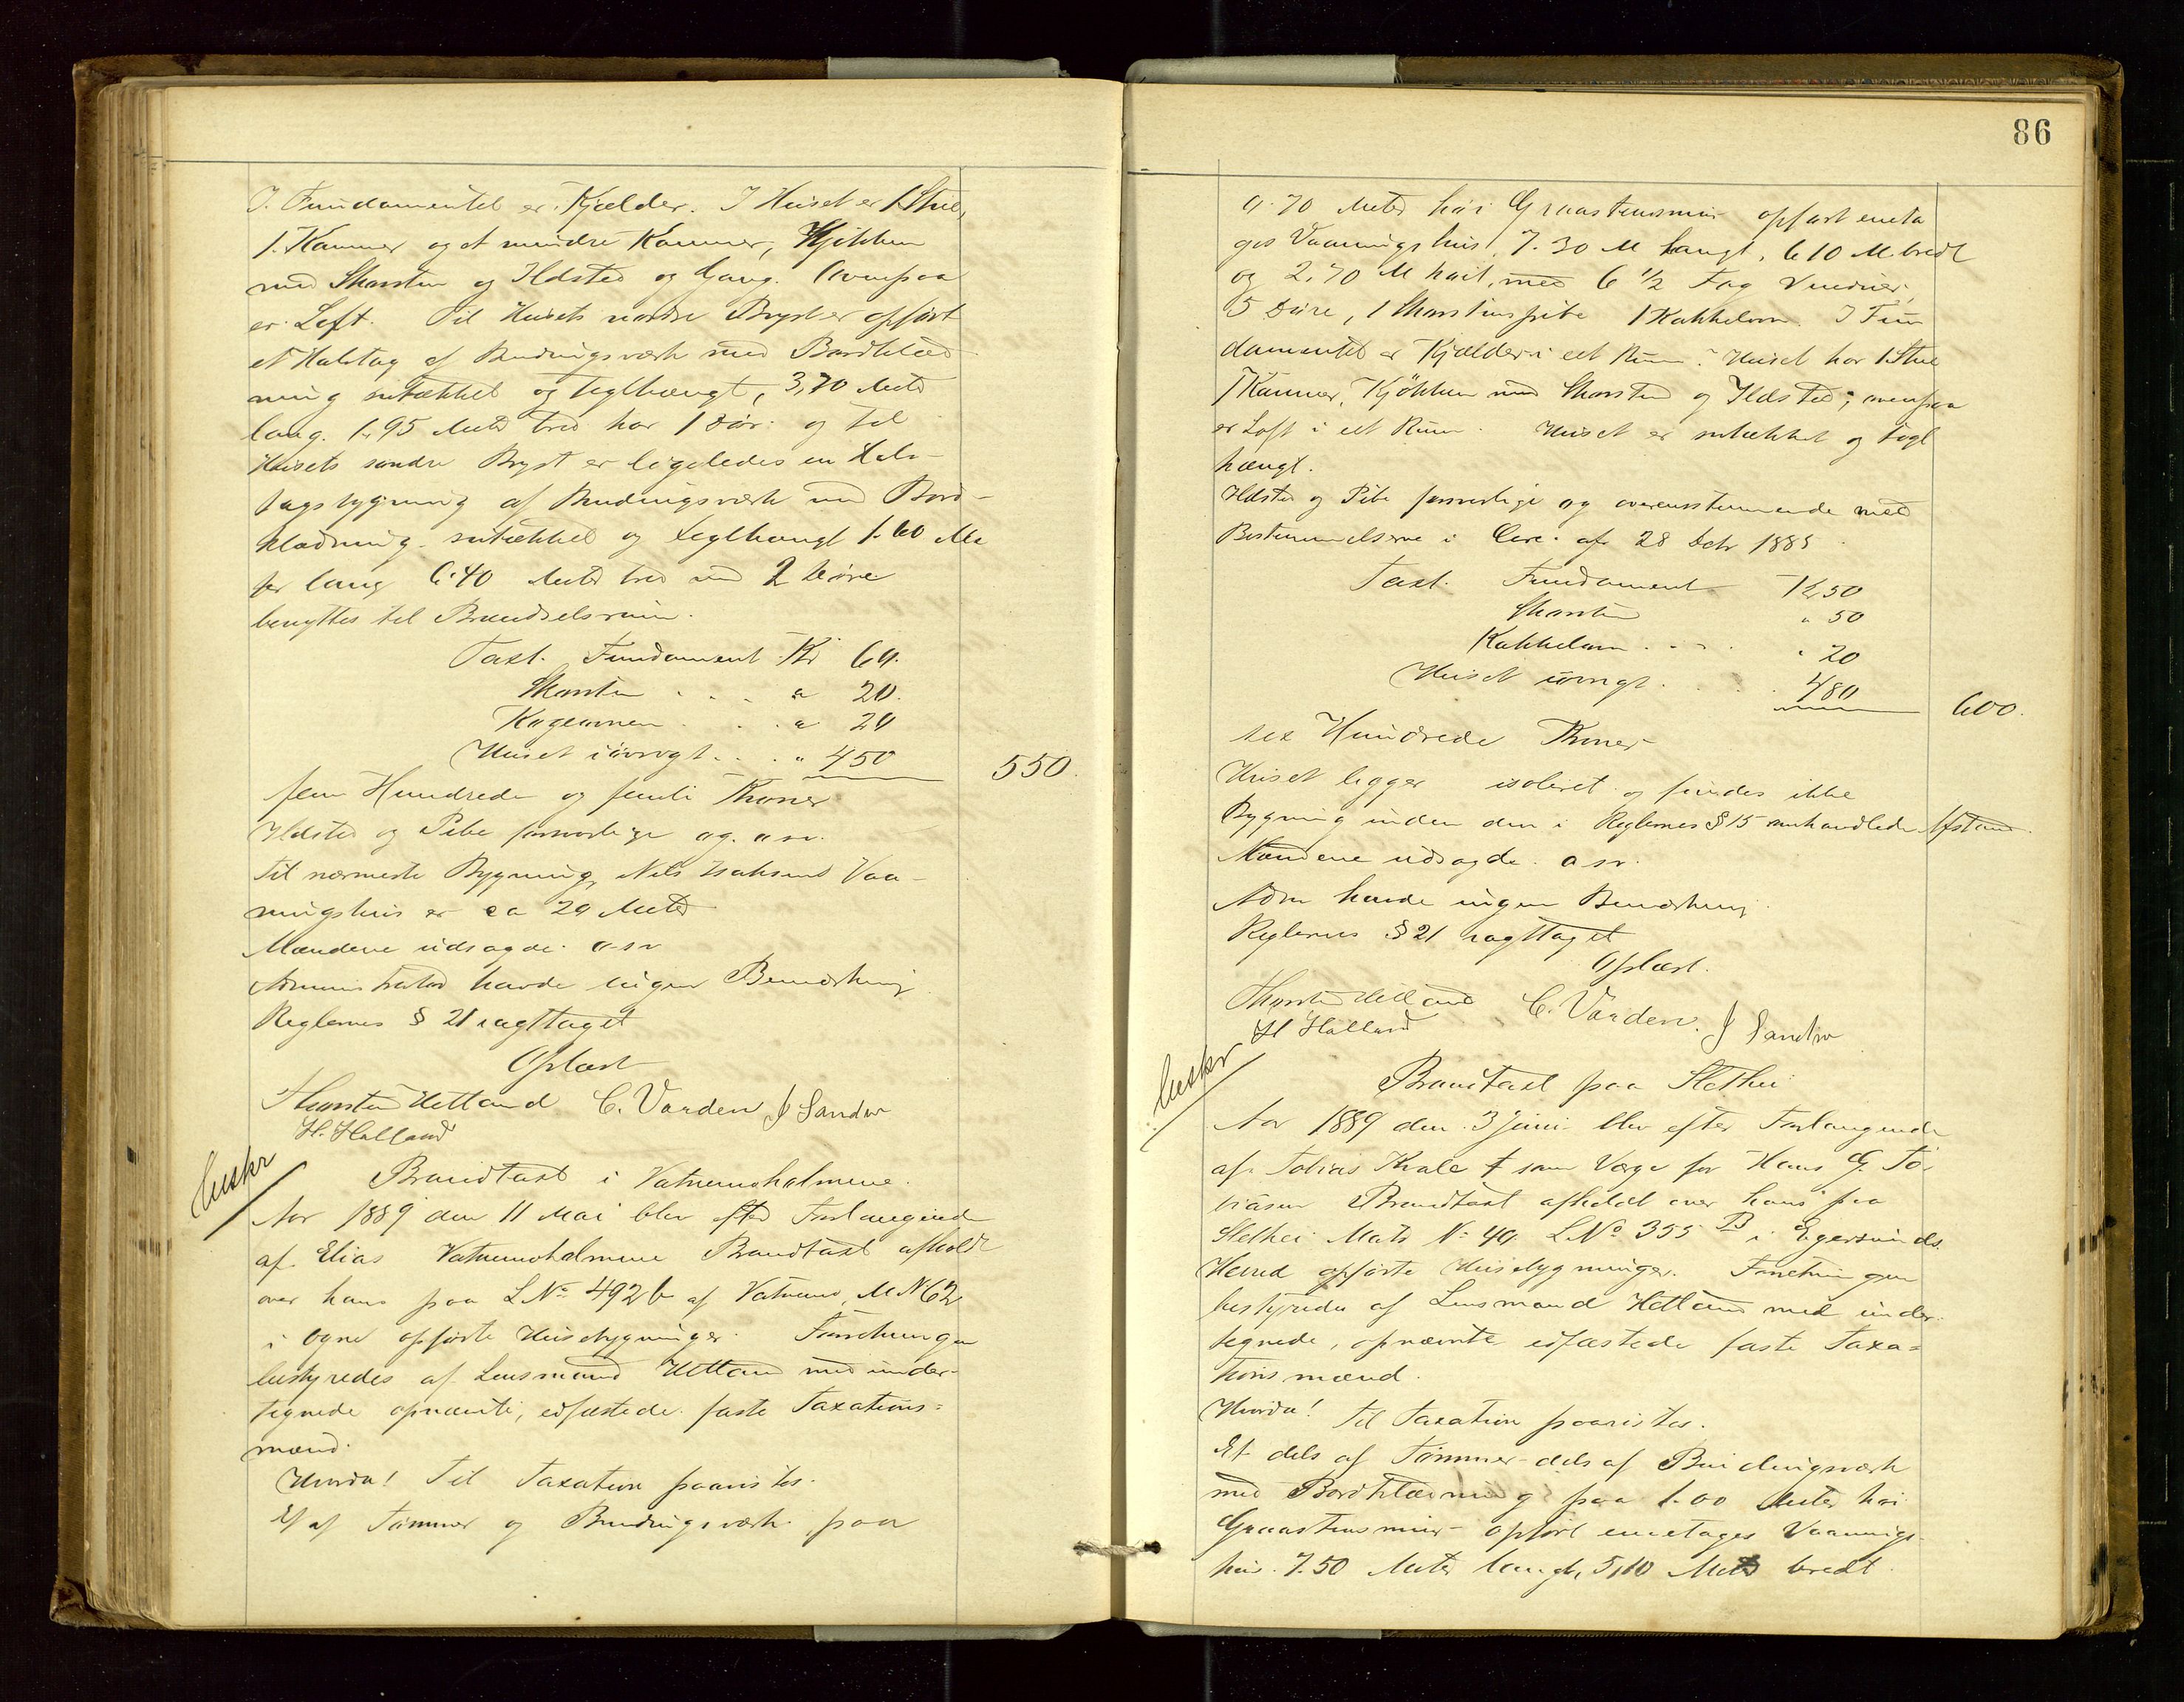 I Fundamentet er Kjelder. I Huset er 1 Stue,
1. Kammer og et mindre Kammer, Kjökken
med Skorsten og Ildsted og Gang. Ovenpaa
er Loft. Til Husets nordre Bryst er opfört
et Halvtag af Bindingsværk med Bordklæd
ning nætækket og teglhængt, 3,70 Meter
lang. 1.95 Meter bred har 1 Dör. og til
Husets söndre Bryst er ligeledes en Halv-
tagsbygning af Bindingsværk med Bord-
klædning. nætækket og teglhængt 1.60 Me
ter lang 6.40 Meter bred med 2 Döre
benyttes til Brændselsrum.
Taxt. Fundament Kr 60.
Skorsten . . . " 20.
Kogeovnen . . . " 20
Huset iövrigt . . . " 450
550.
fem Hundrede og femti Kroner
Ildsted og Pibe forsvarlige og. o s v.
Til nærmeste Bygning, Nils Isaksens Vaa-
ningshus er ca 29 Meter
Mændene udsagde o s v
Administrator havde ingen Bemærkning.
Reglernes § 21 iagttaget
Oplæst
Thorsten Hetland C. Varden J Sandve
H. Halland
Uskr
Brandtaxt i Vatnemoholmene.
Aar 1889 den 11 Mai blev efter Forlangende
af Elias Vatnemoholmene Brandtaxt afholdt
over hans paa L No 492 b af Vatnemo, M N 62
i Ogne opförte Husebygninger. Forretningen
bestyredes af Lensmand Hetland med under-
tegnede opnævnte, edfæstede faste Taxations-
mænd.
Hvorda! Til Taxation paavistes.
Et af Tömmer og Bindingsværk paa
86
0.70 Meter höi Graastensmur opfört eneta
ges Vaaningshus, 7.30 M langt, 6.10 M. bredt
og 2.70 M höit, med 6 1/2 Fag Vinduer,
5 Döre, 1 Skorstenspibe 1 Kakkelovn. I Fun
damentet er Kjelder i eet Rum. Huset har 1 Stue
1 Kammer, Kjökken med Skorsten og Ildsted; ovenpaa
er Loft i eet Rum. Huset er nætækket og tegl
hængt.
Ildsted og Pibe forsvarlige og overensstemmende med
Bestemmelserne i Circ. af 28 Octr 1885.
Taxt. Fundament Kr 50
Skorsten " 50
Kakkelovn . . . " 20
Huset iövrigt . . . 480
600.
sex Hundrede Kroner
Huset ligger isoleret og findes ikke
Bygning inden den i Reglernes § 15 omhandlede Afstand.
Mændene udsagde o s v.
Adm havde ingen Bemærkning.
Reglernes § 21 iagttaget
Oplæst.
Thorsten Hetland C. Varden. J Sandve
H Halland
Uskr
Brandtaxt paa Slethei
Aar 1889 den 3 Juni blev efter Forlangende
af Tobias Kvale som Værge for Hans G. To-
biasen Brandtaxt afholdt over hans paa
Slethei Matr No 40. L.No 355 B i Egersunds
Herred opförte Husebygninger. Forretningen
bestyredes af Lensmand Hetland med under
tegnede, opnævnte edfæstede faste Taxa-
tionsmænd.
Hvorda! Til Taxation paavistes.
Et dels af Tömmer dels af Bindingsværk
med Bordklædning paa 1.00 Meter höi
Graastensmur opfört enetages Vaanings-
hus. 7.50 Meter langt, 5,10 Meter bredt